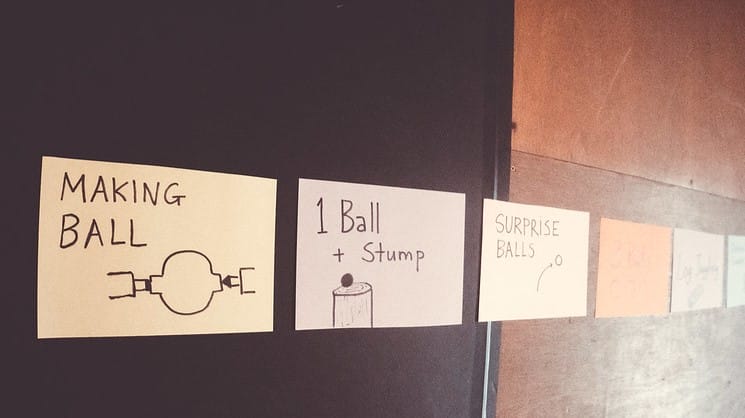 MAKING
BALL
1 Ball
+ Stump
SURPRISE
BALLS